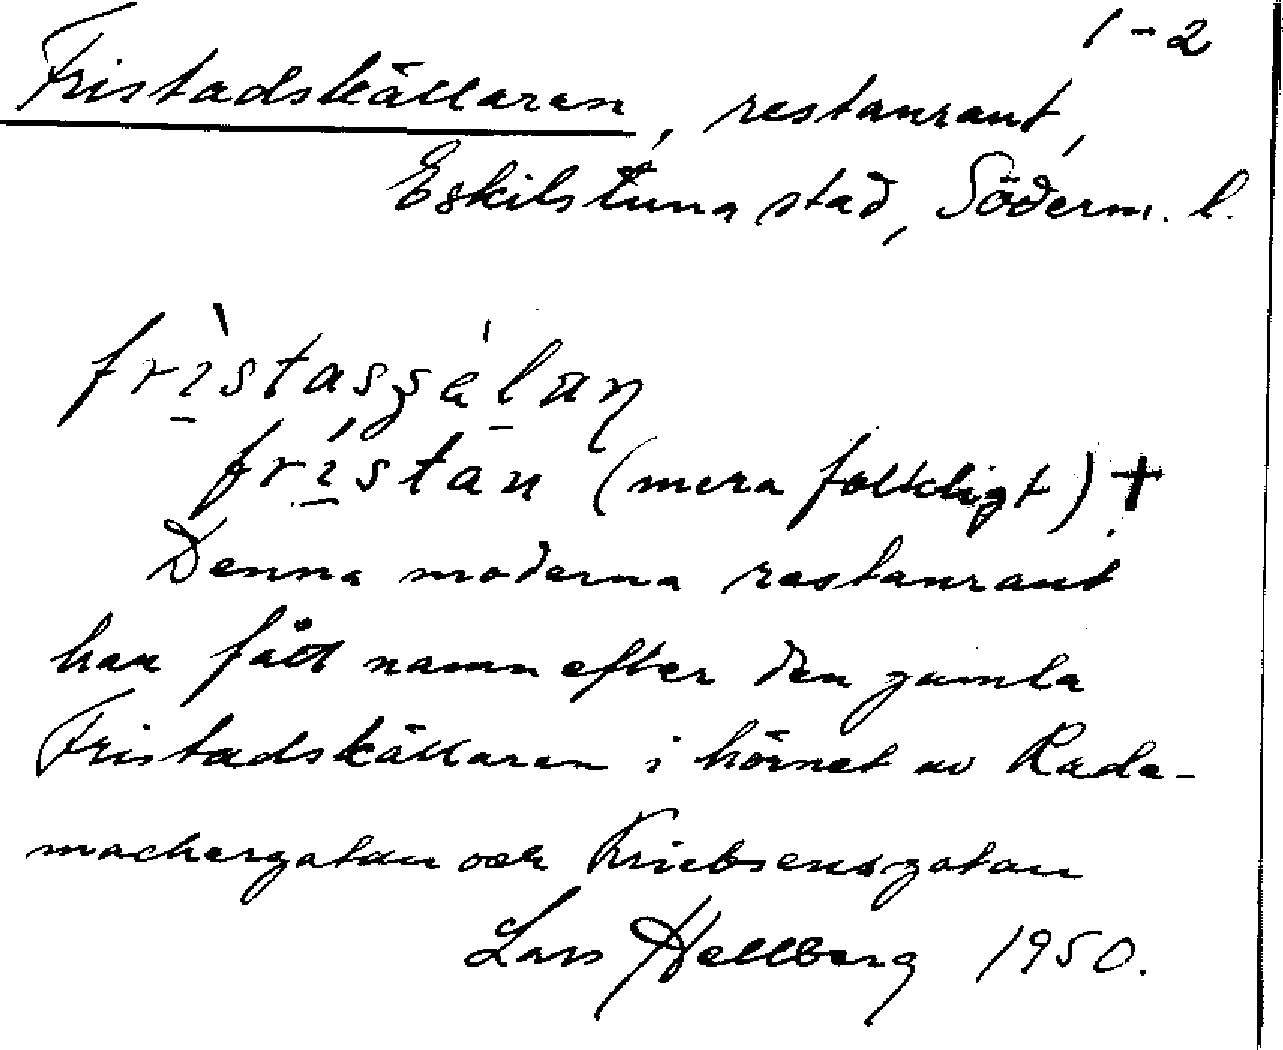 1-2
Fristadskällaren, restaurant,
Eskilstuna stad, Söderm. l.
fristan (mera folkligt) +
Denna moderna restaurant
har fått namn efter den gamla
Fristadskällaren i hörnet av Rade-
machergatan och
Lars Hellberg 1950.